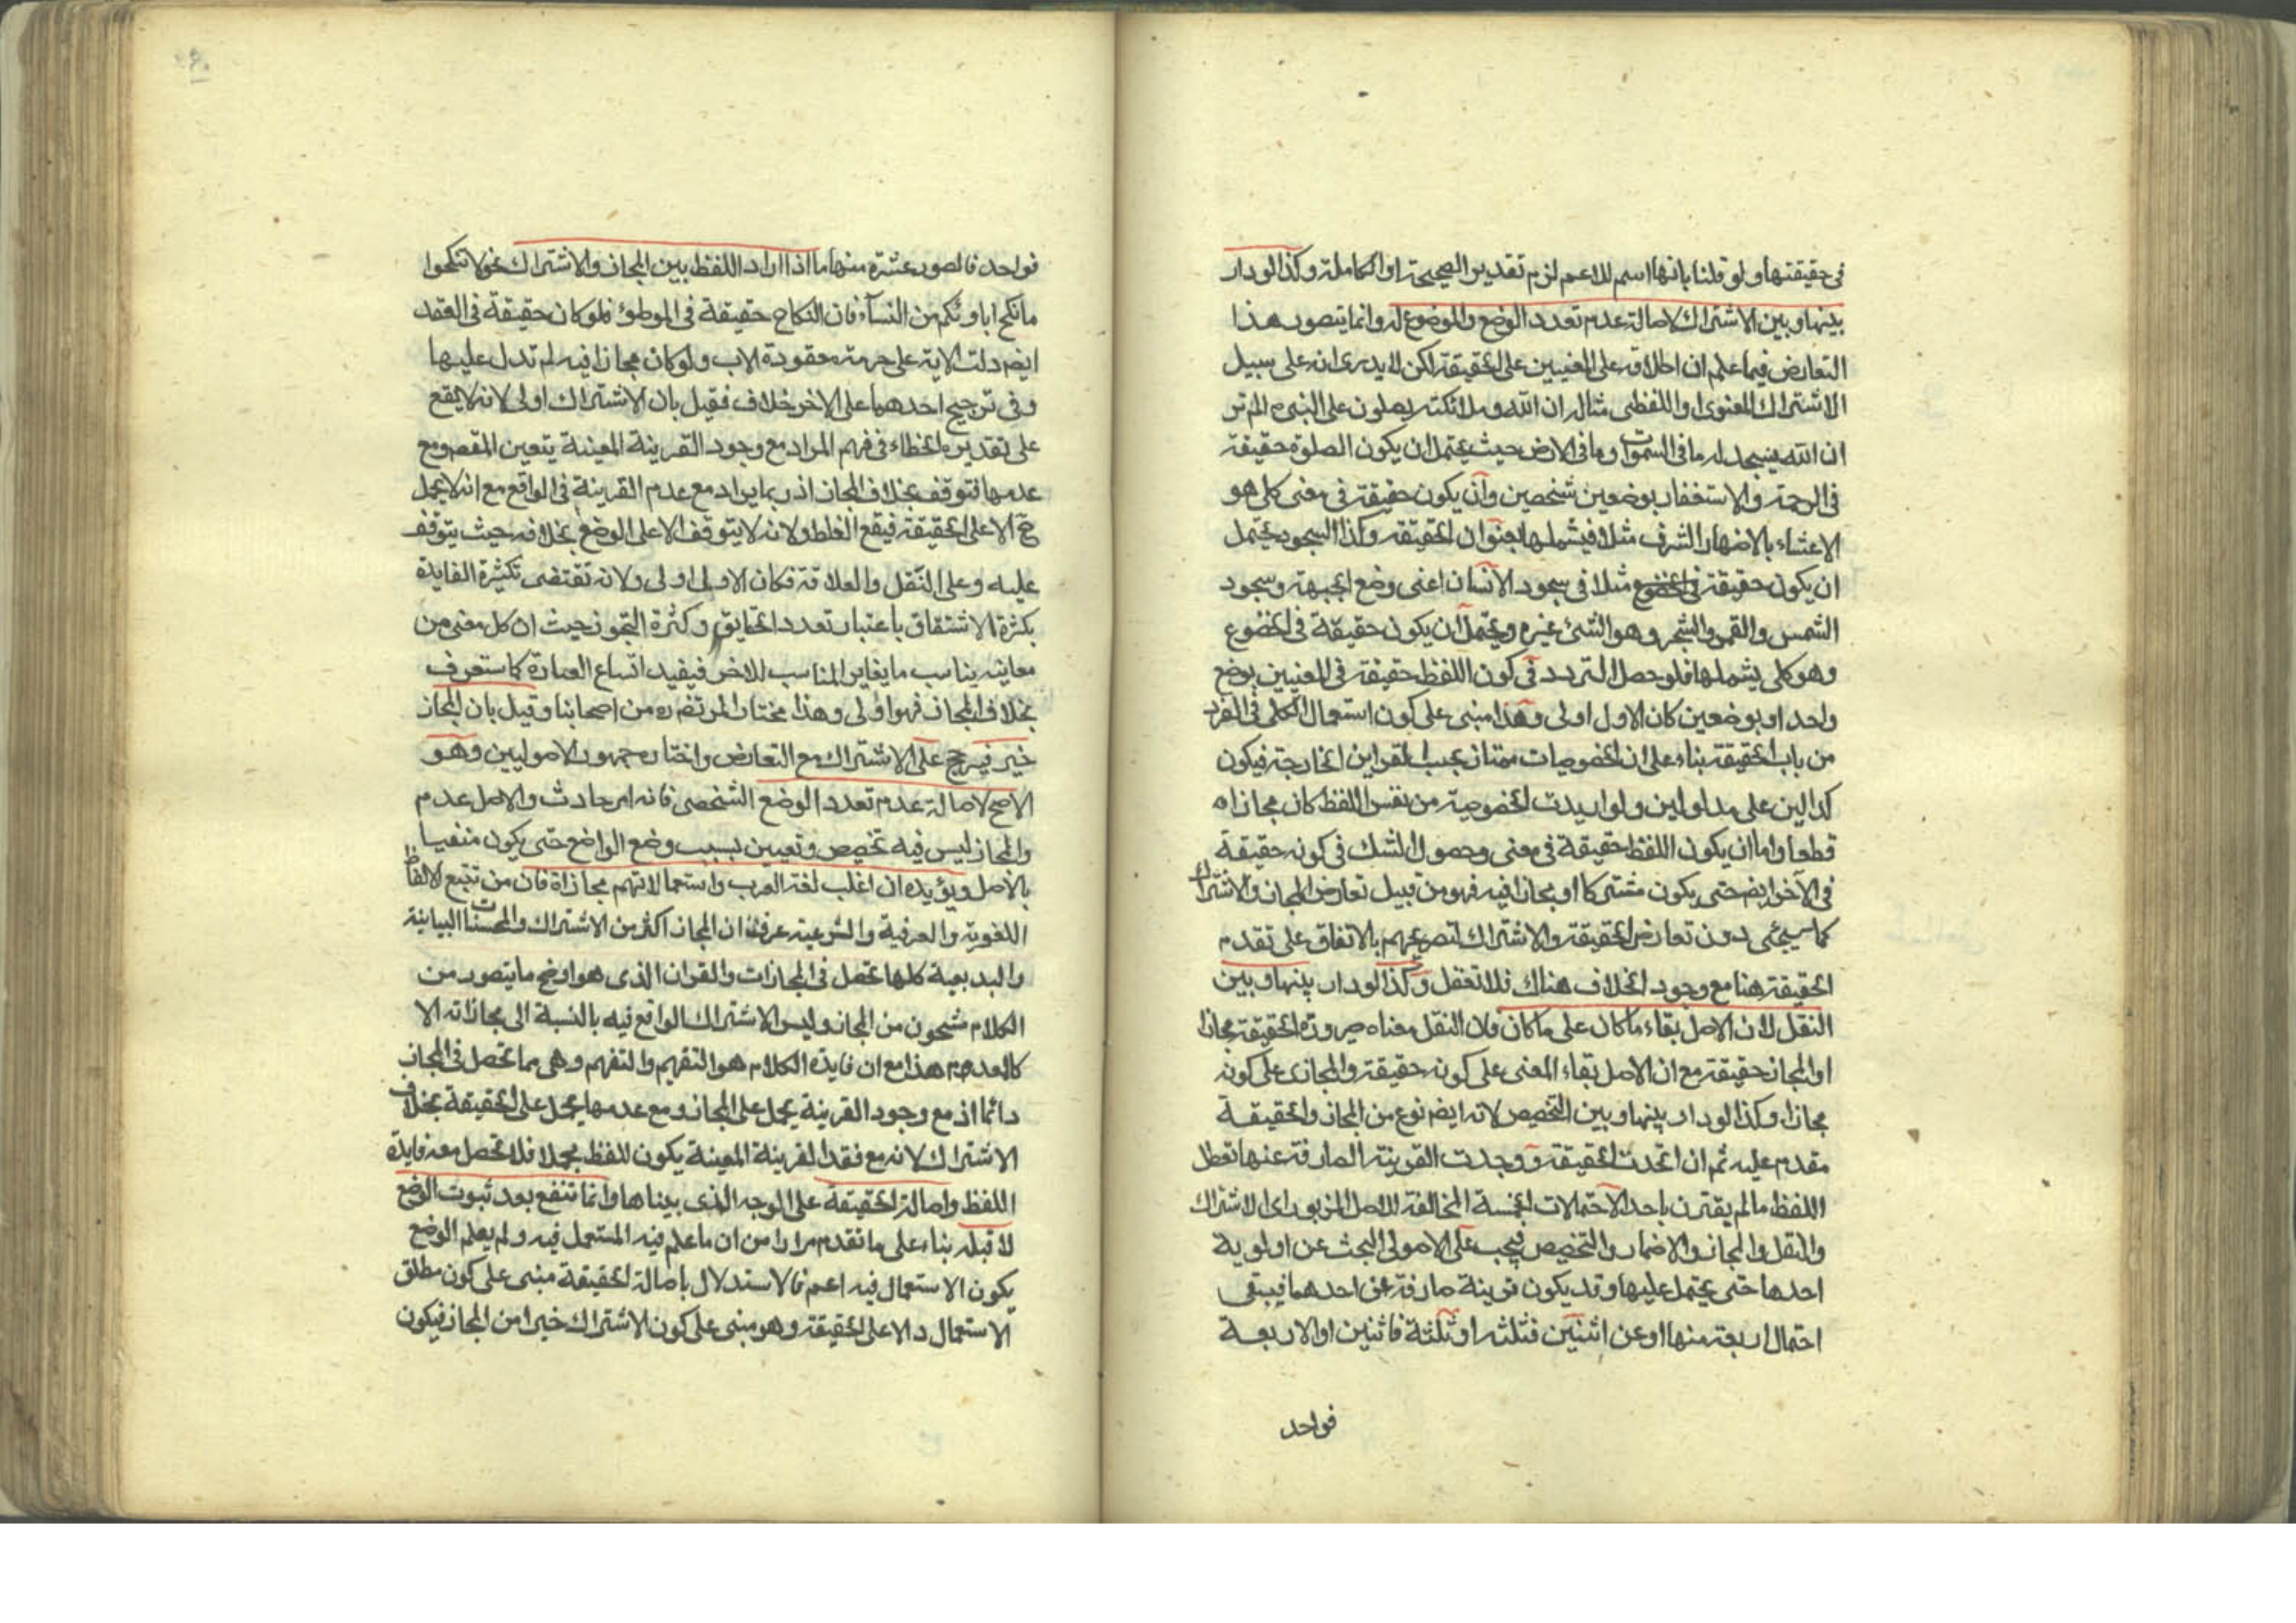 في حقيقتها ولو قلنا بانها اسم للاعم لزم تقدير الصحيحة او الكاملة وكذا لو دار
بينها وبين الاشتراك لاصالة عدم تعدد الوضع والموضوع له وانما يتصور هذا
التعارض فيما علم ان اطلاقه على المعنيين على الحقيقة لكن لا يدرى انه على سبيل
الاشتراك المعنوى او اللفظى مثاله ان الله وملائكته يصلون على النبى الم تر
ان الله يسجد له ما فى السموات وما فى الارض حيث يحتمل ان يكون الصلوة حقيقة
فى الرحمة والاستغفار بوضعين شخصين وان يكون حقيقة فى معنى كلى هو
الاعتناء باظهار الشرف مثلا فيشملها بعنوان الحقيقة وكذا السجود يحتمل
ان يكون حقيقة فى الخضوع مثلا فى سجود الانسان اعنى وضع الجبهة وسجود
الشمس والقمر والشجر وهو الشئ غيره ويحتمل ان يكون حقيقة فى الخضوع
وهو كلى يشملها فلو حصل التردد فى كون اللفظ حقيقة فى المعنيين بوضع
واحد او بوضعين كان الاول اولى وهذا مبنى على كون استعمال الكلى فى الفرد
من باب الحقيقة بناء على ان الخصوصيات ممتاز بحسب القراين الخارجة فيكون
كدالين على مدلولين ولو اريدت الخصوصية من نفس اللفظ كان مجازا ه
قطعا واما ان يكون اللفظ حقيقة فى معنى وحصول الشك فى كونه حقيقة
فى الآخر ايضا حتى يكون مشتركا او مجازا فيه فهو من قبيل تعارض المجاز والاشتراك
كما سيجئى دون تعارض الحقيقة والاشتراك لتصريحهم بالاتفاق على تقدم
الحقيقة هنا مع وجود الخلاف هناك فلا تغفل وكذا لو دار بينها وبين
النقل لان الاصل بقاء ما كان على ما كان ولان النقل معناه صيرورة الحقيقة مجازا
او المجاز حقيقة مع ان الاصل بقاء المعنى على كونه حقيقة والمجازى على كونه
مجازا وكذا لو دار بينها وبين التخصيص لانه ايضا نوع من المجاز والحقيقة
مقدم عليه ثم ان اتحدت الحقيقة ووجدت القرينة الصارفة عنها تعطل
اللفظ ما لم يقترن باحد الاحتمالات الخمسة المخالفة للاصل المزبور اى الاشتراك
والنقل والمجاز والاضمار والتخصيص فيجب على الاصولى البحث عن اولوية
احدها حتى يحتمل عليها وقد يكون قرينة صارفة عن احدهما فيبقى
احتمال اربعة منها او عن اثنين فثلثه او ثلثة فاثنين او الاربعة
فواحد
فواحد فالصور عشرة منها ما اذا اراد اللفظ بين المجاز والاشتراك نحو لا تنكحوا
ما نكح اباوئكم من النسآء فان النكاح حقيقة فى الموطوئ فلو كان حقيقة فى العقد
ايضا دلت الاية على حرمة معقودة الاب ولو كان مجازا فيه لم تدل عليها
وفى ترجيح احدهما على الاخر خلاف فقيل بان الاشتراك اولى لانه لا يقع
على تقديره الخطاء فى فهم المراد مع وجود القرينة المعينة يتعين المقصود مع
عدمها نتوقف بخلاف المجاز اذ ربما يراد مع عدم القرينة فى الواقع مع انه لا يحمل
ح الا على الحقيقة فيقع الغلط ولانه لا يتوقف الا على الوضع بخلافه حيث يتوقف
عليه وعلى النقل والعلاقة فكان الاولى اولى ولانه تقتضى تكثرة الفايدة
بكثرة الاشتقاق باعتبار تعدد الحقايق وكثرة التجوز حيث ان كل معنى من
معانيه يناسب ما يغاير المناسب للاخر فيفيد اتساع العبارة كما ستعرف
بخلاف المجاز فهو اولى وهذا مختار المرتضى ره من اصحابنا وقيل بان المجاز
خير فيرجح على الاشتراك مع التعارض واختاره جمهور الاصوليين وهو
الاصح لاصالة عدم تعدد الوضع الشخصى فانه امر حادث والاصل عدم
والمجاز ليس فيه تخصيص وتعيين بسبب وضع الواضع حتى يكون منفيا
بالاصل ويؤيده ان اغلب لغة العرب واستعمالاتهم مجازاة فان من تتبع الالفاظ
اللغوية والعرفية والشرعية عرف ان المجاز اكثر من الاشتراك والمحسنات البيانية
والبديعية كلها تحصل فى المجازات والقران الذى هو اوضح ما يتصور من
الكلام مشحون من المجاز وليس الاشتراك الواقع فيه بالنسبة الى مجازاته الا
كالمعدوم هذا مع ان فايدة الكلام هو التفهيم والتفهم وهى مما تحصل فى المجاز
دائما اذ مع وجود القرينة يحمل على المجاز ومع عدمها يحمل على الحقيقة بخلاف
الاشتراك لانه مع فقد القرينة المعينة يكون اللفظ مجملا فلا تحصل معه فايدة
اللفظ واصالة الحقيقة على الوجه الذى بيناها وانما تنفع بعد ثبوت الوضع
لا قبله بناء على ما تقدم مرارا من ان ما علم فيه المستعمل فيه ولم يعلم الوضع
يكون الاستعمال فيه اعم فالاستدلال باصالة الحقيقة مبنى على كون مطلق
الاستعمال دالا على الحقيقة وهو مبنى على كون الاشتراك خيرا من المجاز فيكون